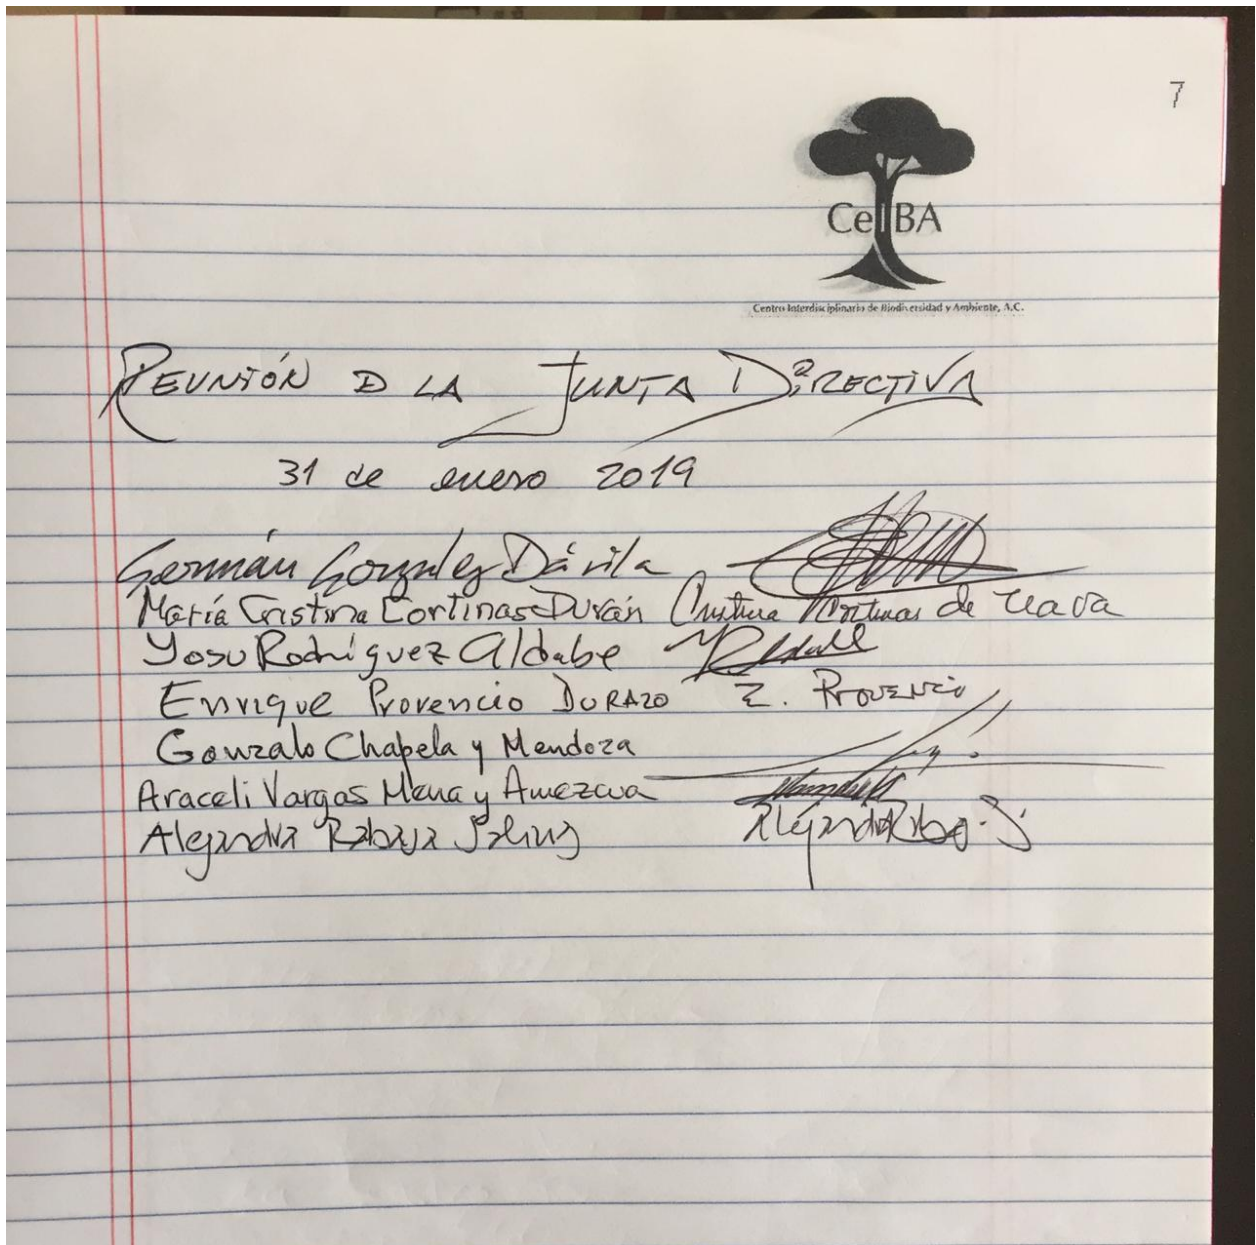 7
CeIBA
Centro Interdisciplinario de Biodiversidad y Ambiente, A.C.
REUNIÓN D LA JUNTA DIRECTIVA
31 de enero 2019
Germán González Dávila
María Cristina Cortinas Durán Cristina Cortinas de Nava
Yosu Rodríguez Aldabe
Enrique Provencio DURAZO E. PROVENCIO
Gonzalo Chapela y Mendoza
Araceli Vargas Mena y Amezcua
Alejandra Rabasa Salinas